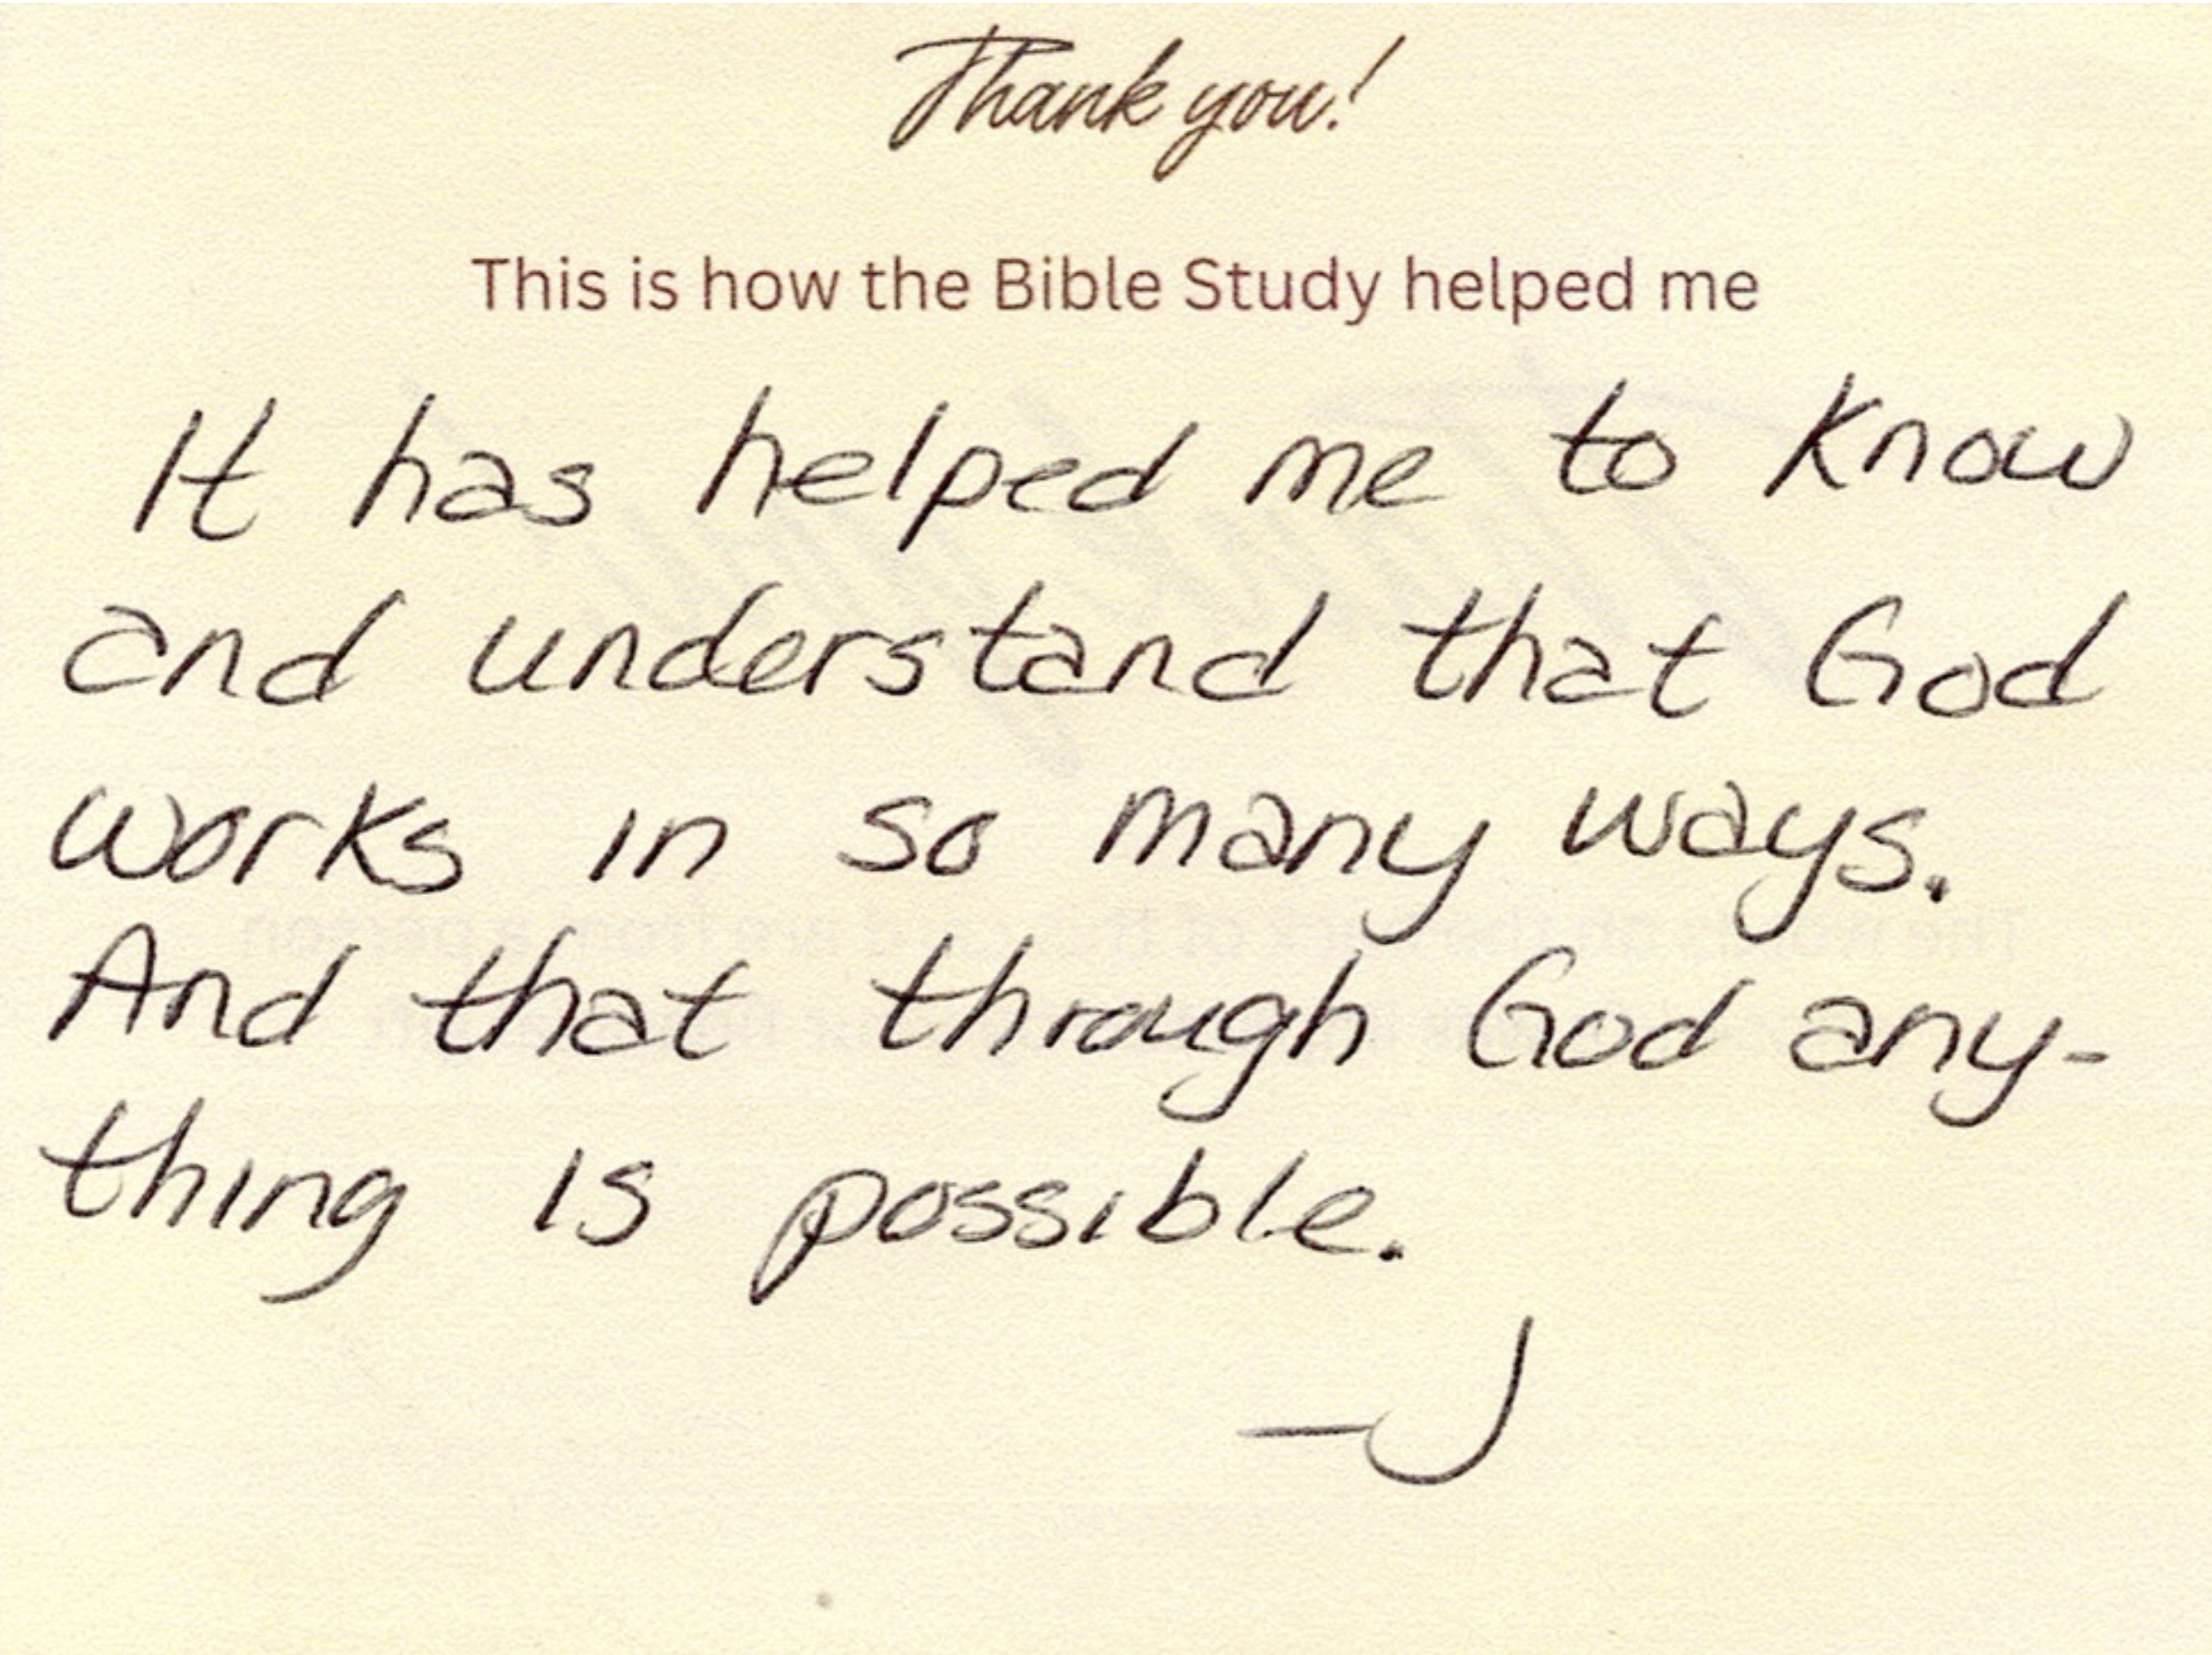 Thank you!
This is how the Bible Study helped me
It has helped me to know
and understand that God
works in so many ways.
And that through God any-
thing is possible.
—J